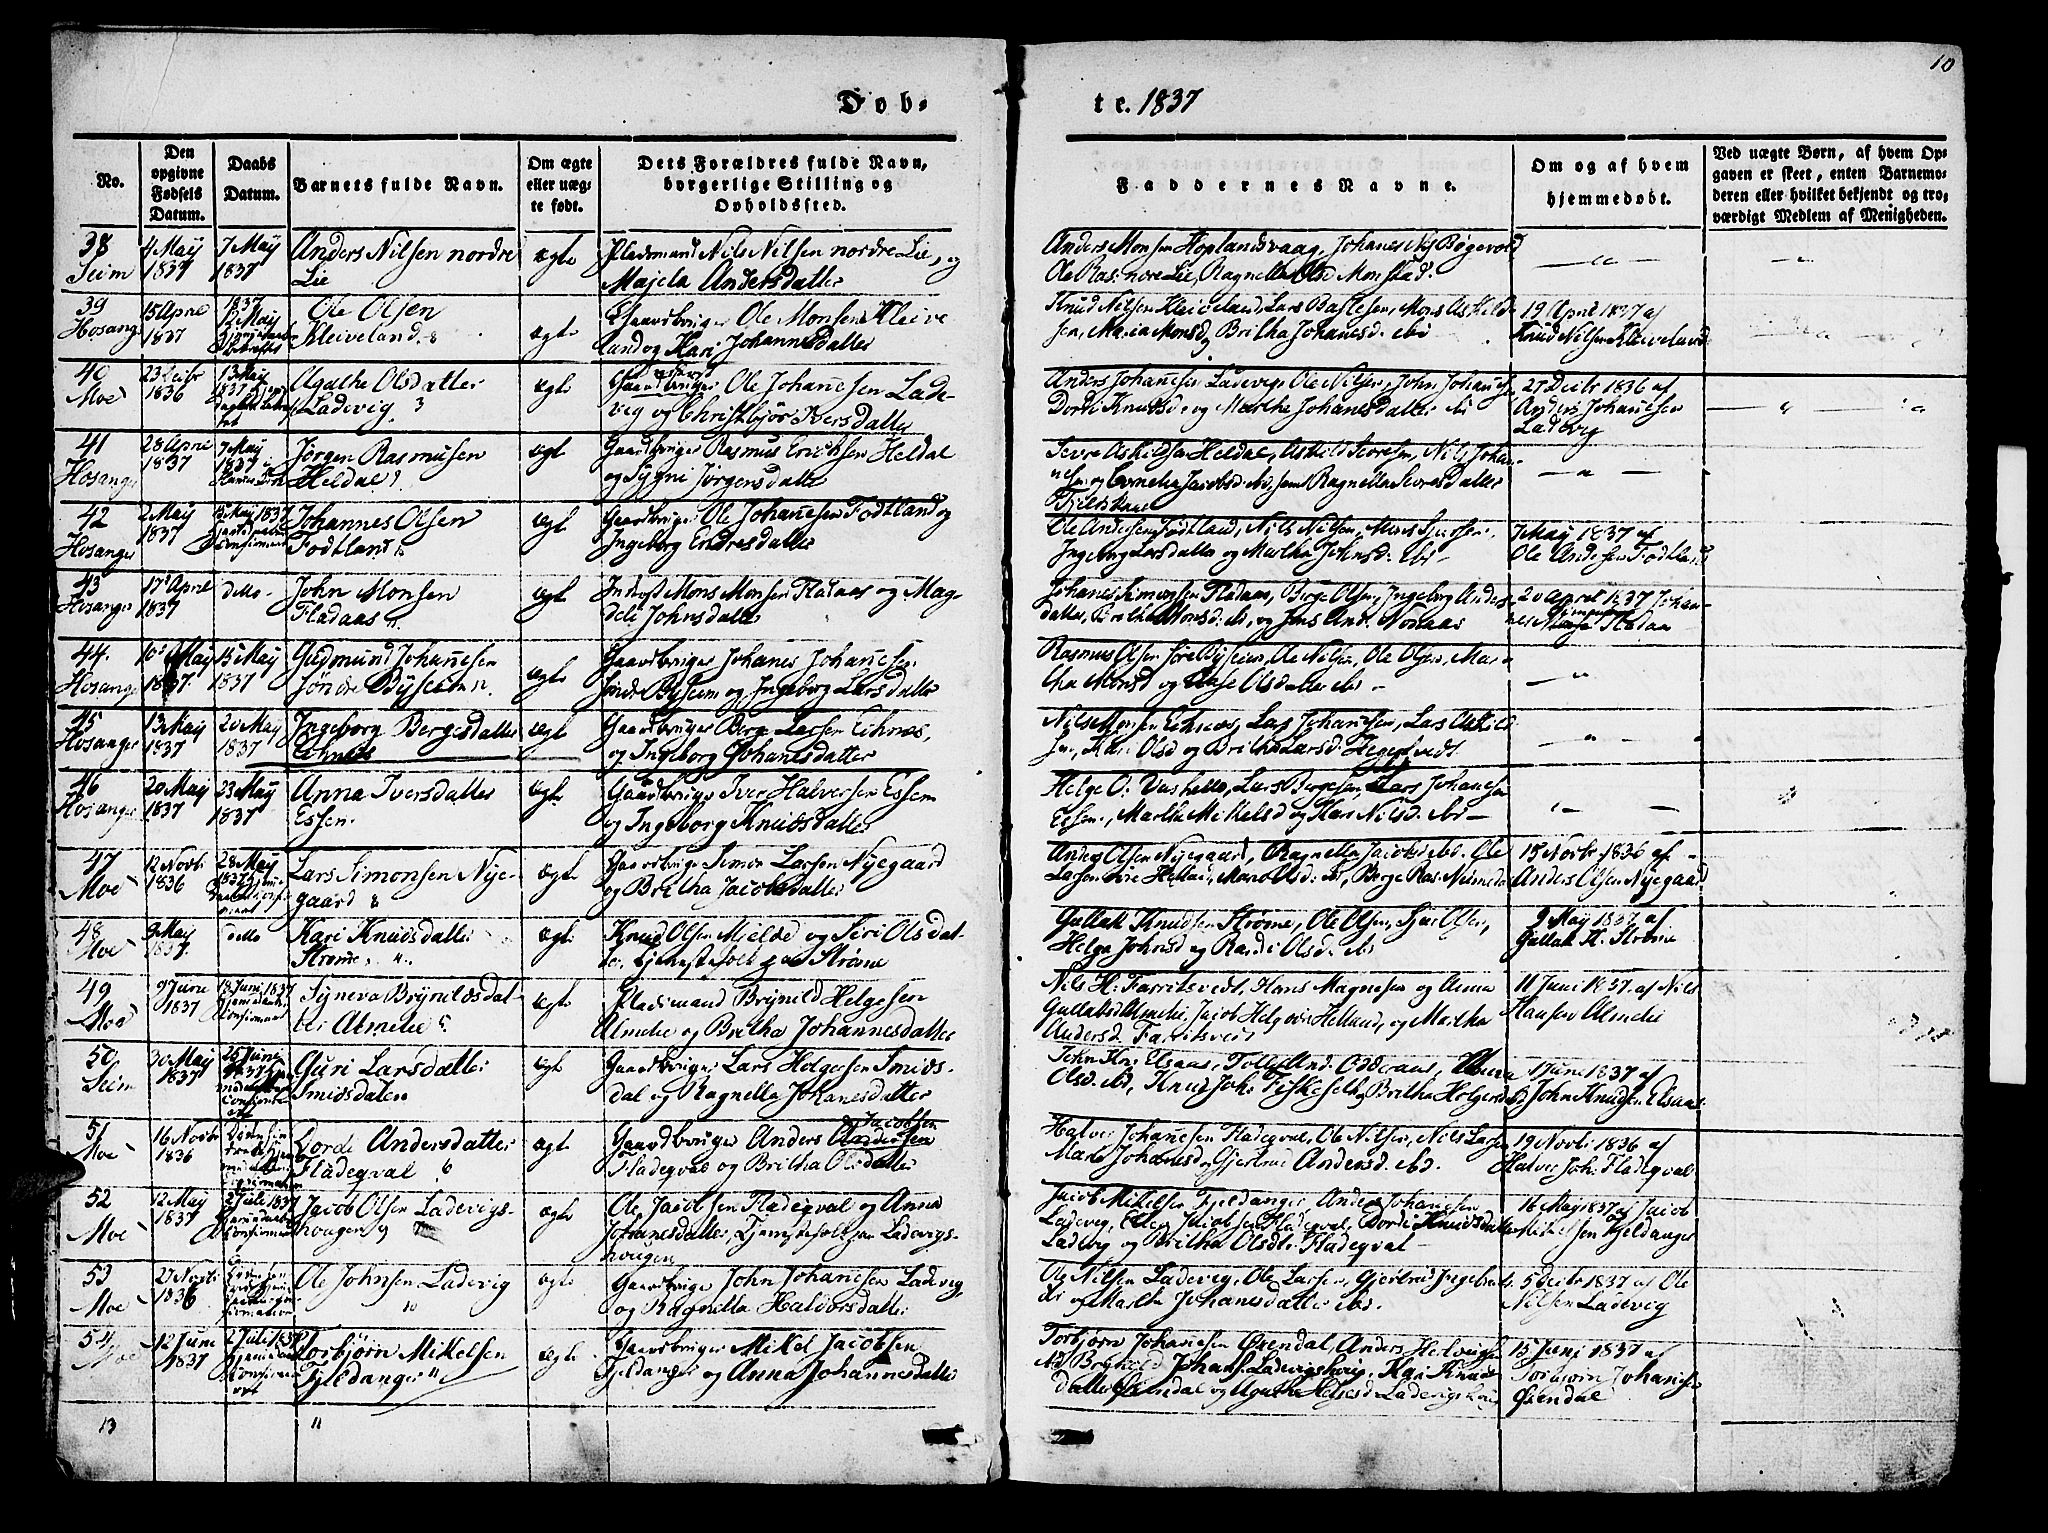 10
Døb-
te. 1837
No.
Den
opgivne
Fødsels
Datum.
Daabs
Datum.
Barnets fulde Navn.
Om ægte
eller uæg-
te født.
Dets Forældres fulde Navn,
borgerlige Stilling og
Opholdssted.
Faddernes Navne.
Om og af hvem
hjemmedøbt.
Ved uægte Børn, af hvem Op-
gaven er skeet, enten Barnemo-
deren eller hvilket bekjendt og tro-
værdigt Medlem af Menigheden.
38
Seim
4 May
1837
7 May
1837
Anders Nilsen nordre
Lie
ægte
Pladsmand Nils Nilsen nordre Lie, og
Majela Andersdatter
Anders Monsen Hoplandsvaag, Johanes Nils Bøgevold
Ole Ras: nore Lie, Ragnella Olsd Monstad.
39
Hosanger
15 April
1837
1837
12 May
Ole Olsen
Kleiveland
ægte
Gaardbruger Ole Monsen Kleive
land og Kari Johannesdatter
Knud Nilsen Kleiveland, Lars Mons Askild
sen, Maria Monsd, Britha Johanesd. ibid
19 April 1837 af
Knud Nilsen Kleiveland
40
Moe
23 Decbr
1836
13 May
1837
Agathe Olsdatter
Ladevig
ægte
Gaardbruger Ole Johanesen Lade-
vig og Christbjør Iversdatter
Anders Johanesen Ladevig, Ole Nilsen, John Johanesen
Dordi Knudsd: og Martha Johanesdatter ibi
27 Decbr 1836 af
Anders Johanesen
Ladevig
41
Hosanger
28 April
1837
7 May
1837
Jørgen Rasmusen
Heldal
ægt
Gaardbruger Rasmus Ericksen Heldal
og Sygni Jørgensdatter
Sevre Askildsen Heldal, Askild Sevresen, Nils Johan-
nesen og Cornelia Jacobsd ibd, samt Ragnella Sevresdatter
42
Hosanger
2 May
1837
15 May 1837
Johannes Olsen
Fodtland
ægt
Gaardbruger Ole Johanesen Fodtland og
Ingeborg Endresdatter
Ole Andersen Fodtland, Nils Nilsen, Mons Sjursen,
Ingeborg Larsdatter og Martha Johnsd. ibi
7 May 1837 af
Ole Andersen Fodtland
43
Hosanger
17 April
1837
detto
John Monsen
Fladaas
ægt
Inderst Mons Monsen Fladaas og Mag-
deli Johnsdatter
Johanes Simonsen Fladaas, Berge Olsen, Ingeborg Anders-
datter, Britha Monsd: ibi, og Jens And: Nonaas
20 April 1837 Johan-
44.
Hosanger
10 May
1837.
15 May
1837
Gudmund Johanesen
søndre Byseim
ægte
Gaardbruger Johanes Johanesen
søndre Byseim og Ingeborg Larsdatter
Rasmus Olsen søre Byseim, Ole Nilsen, Ole Olsen, Mar-
tha Monsd og Aase Olsdatter ibi
45
Hosanger
13 May
1837
20 May
1837
Ingeborg Bergesdatter
Eihnæs
ægt
Gaardbruger Berge Larsen Eihnæs,
og Ingeborg Johanesdatter
Nils Monsen Eihnæs, Lars Johanesen, Lars Askild
sen, Mari Olsd og Britha Larsd:
46
Hosanger
20 May
1837
23 May
1837
Anna Iversdatter
Essem
ægte
Gaardbruger Iver Halversen Essem
og Ingeborg Knudsdatter
Helge O: Lars Bergesen, Lars Johanesen
Essem, Martha Mikelsd og Kari Nilsd. ibi
47
Moe
12 Novbr
1836
28 May
1837
Lars Simonsen Nye-
gaard
ægte
Gaardbruger Simon Larsen Nyegaard
og Britha Jacobsdatter
Anders Olsen Nyegaard, Ragnella Jacobsd ibd. Ole
Larsen
15 Novbr 1836 af
Anders Olsen Nyegaard
48
Moe
9 May
1837.
detto
Kari Knudsdatter
Strøme
ægte
Knud Olsen Mjelde og Siri Olsdat-
ter. tjenestefolk paa Strøme
Gullak Knudsen Strøme, Ole Olsen, Sjur Olsen,
Helga Johnsd og Randi Olsd. ibi
9 May 1837 af
Gullak K. Strøme
49
Moe
9 June
1837
18 Juni 1837
Synneva Brynildsdat-
ter Almelie
ægte
Pladsmand Brynild Helgesen
Almelie og Britha Johannesdatter
Nils H: Farritsvedt, Hans Magnesen og Anna
Gullaksd Almelie, Jacob Helland, og Martha
Andersd Farritsvedt
11 Juni 1837. af Nils
Hansen Almelie
50
Seim
30 May
1837
25 June
1837
Guri Larsdatter
Smidsdalen
ægt
Gaardbruger Lars Holgersen Smids-
dal og Ragnella Johanesdatter
John Kn: Elsaas, Anna
Olsd. ibd, Knud Joh: Fiskeseth og Britha Holgersd
1 June 1837 af
John Knudsen Elsaas
51
Moe
16 Novbr
1836
Dorde Andersdatter
Fladeqval
ægte
Gaardbruger Anders Jacobsen
Fladeqval og Britha Olsdatter
Halver Johanesen Fladeqval, Ole Nilsen, Nils Larsen
Mari Johanesd og Gjertrud Andersd. ibd.
19 Novbr 1836 af
Halver Joh: Fladeqval
52
Moe
12 May
1837
2 Juli 1837
Jacob Olsen Ladevigs-
hougen
ægte
Ole Jacobsen Fladeqval og Anna
Johanesdatter, Tjenestefolk paa Ladevigs-
hougen
Jacob Mikelsen Fjeldanger, Anders Johanesen
Ladevig, Jacobsen Fladeqval, Dordi Knudsdatter
Ladevig og Britha Olsdtr. Fladeqval
16 May 1837 af Jacob
Mikelsen Fjeldanger
53
Moe
27 Novbr
1836
Ole Johnsen Ladevig
10
ægte
Gaardbruger John Johanesen Ladevig
og Ragnella Haldorsdatter
Ole Nilsen Ladevig, Ole Larsen, Gjertrud
og Martha Johanesdatter ibd.
5 Decbr 1837 af Ole
Nilsen Ladevig
54
Moe
12 June
1837
2 Juli 1837
Torbjørn Mikelsen
Fjeldanger
ægte
Gaardbruger Mikel Jacobsen
Fjeldanger og Anna Johannesdatter
Torbjørn Johanesen Øxendal, Anders
Johans: Ladevigshoug, Kari Knuds
datter Øxendal og Agatha Ladevigshoug
15 Juni 1837 af
Torbjørn Johanesen
Øxendal
13
11